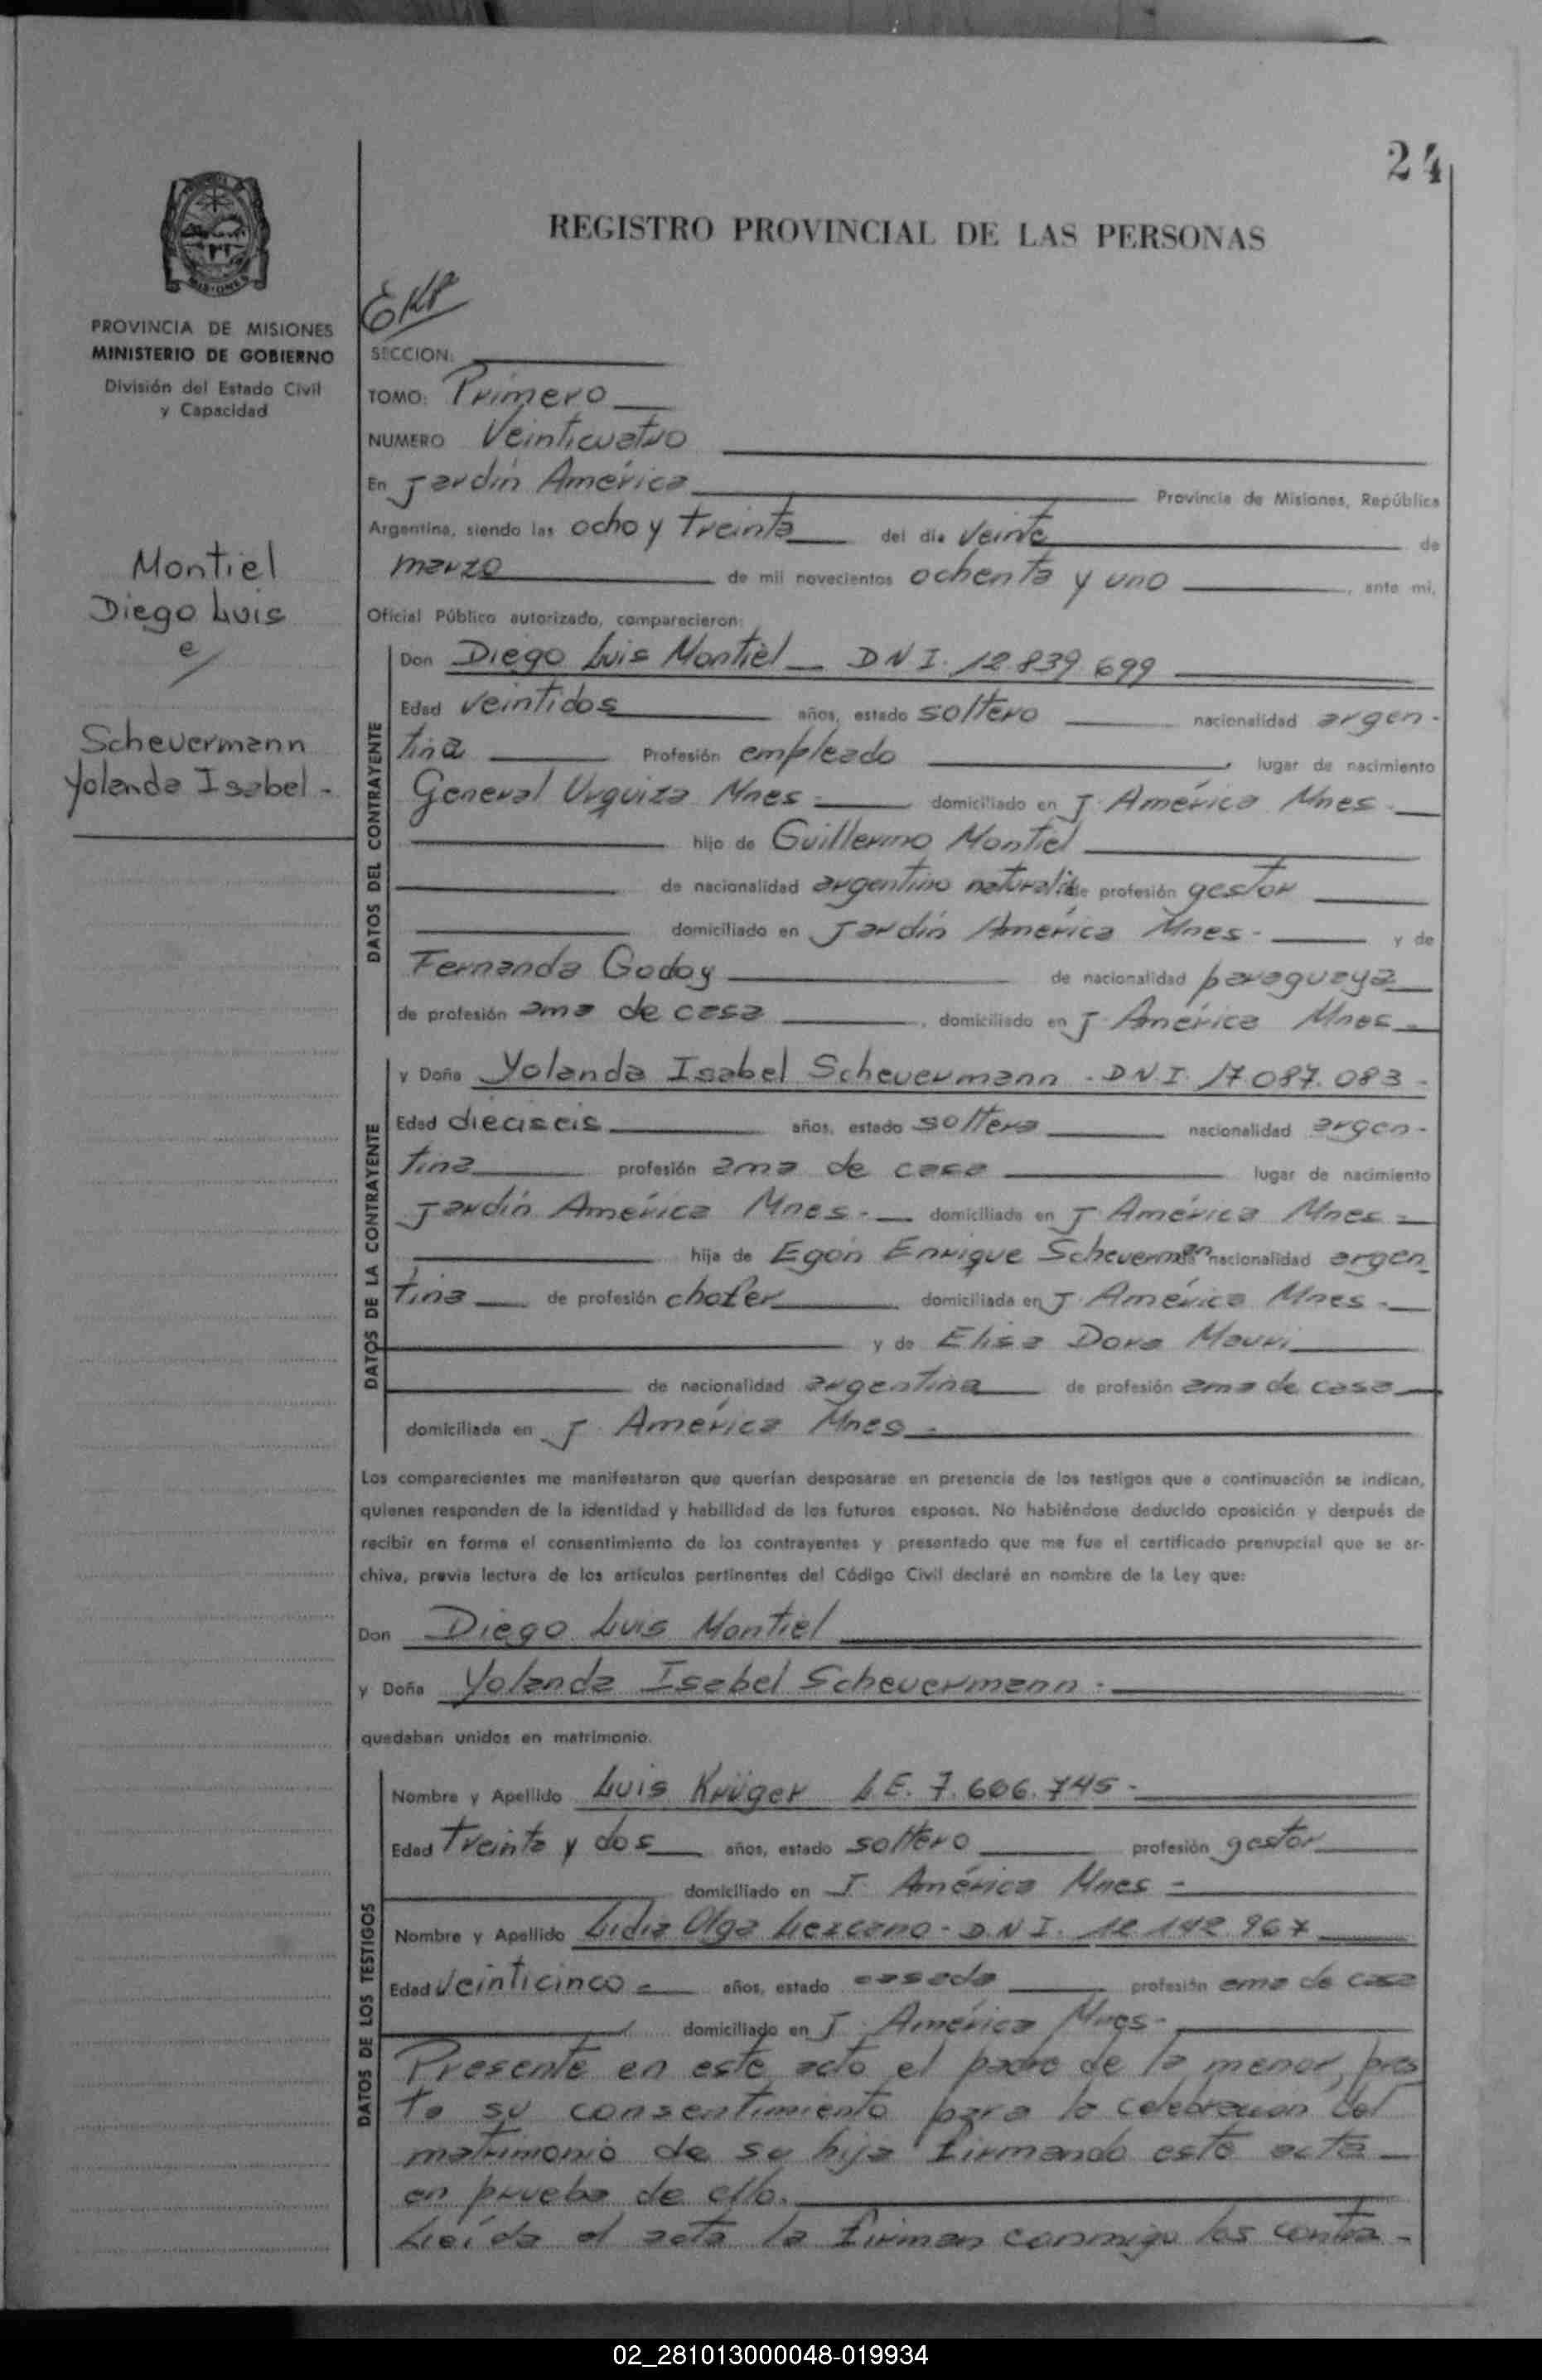 24
REGISTRO PROVINCIAL DE LAS PERSONAS
MISIONES
PROVINCIA DE MISIONES
MINISTERIO DE GOBIERNO
División del Estado Civil
y Capacidad
Montiel
Diego Luis
e/
Scheuermann
Yolanda Isabel -
SECCION:
TOMO: Primero
NUMERO Veinticuatro
En Jardín América Provincia de Misiones, República
Argentina, siendo las ocho y treinta del día veinte de
marzo de mil novecientos ochenta y uno, ante mi,
Oficial Público autorizado, comparecieron:
DATOS DEL CONTRAYENTE
Don Diego Luis Montiel DNI. 12.839.699
Edad veintidos años, estado soltero nacionalidad argen-
tina Profesión empleado, lugar de nacimiento
General Urquiza Mnes domiciliado en J. América Mnes.
hijo de Guillermo Montiel
de nacionalidad argentino de profesión gestor
domiciliado en Jardín América Mnes. y de
Fernanda Godoy de nacionalidad paraguaya
de profesión ama de casa, domiciliado en J. América Mnes.
DATOS DE LA CONTRAYENTE
y Doña Yolanda Isabel Scheuermann - D.N.I. 17.087.083 -
Edad dieciseis años, estado soltera nacionalidad argen-
tina profesión ama de casa lugar de nacimiento
Jardín América Mnes.- domiciliada en J. América Mnes.
hija de Egon Enrique Scheuermann nacionalidad argen
tina de profesión chofer domiciliada en J. América Mnes.
y de Elisa Dora Mauri
de nacionalidad argentina de profesión ama de casa
domiciliada en J. América Mnes.
Los comparecientes me manifestaron que querían desposarse en presencia de los testigos que a continuación se indican,
quienes responden de la identidad y habilidad de los futuros esposos. No habiéndose deducido oposición y después de
recibir en forma el consentimiento de los contrayentes y presentado que me fue el certificado prenupcial que se ar-
chiva, previa lectura de los artículos pertinentes del Código Civil declaré en nombre de la Ley que:
Don Diego Luis Montiel
y Doña Yolanda Isabel Scheuermann -
quedaban unidos en matrimonio.
DATOS DE LOS TESTIGOS
Nombre y Apellido Luis Krüger L.E. 7.606.745 -
Edad treinta y dos años, estado soltero profesión gestor
domiciliado en J. América Mnes -
Nombre y Apellido Lidia Olga Lezcano - D.N.I. 12.142.967
Edad veinticinco años, estado casada profesión ama de casa
domiciliado en J. América Mnes-
Presente en este acto el padre de la menor, pres
ta su consentimiento para la celebracion del
matrimonio de su hija firmando este acta
en prueba de ello.
Leída el acta la firman conmigo los contra-
02_281013000048-019934